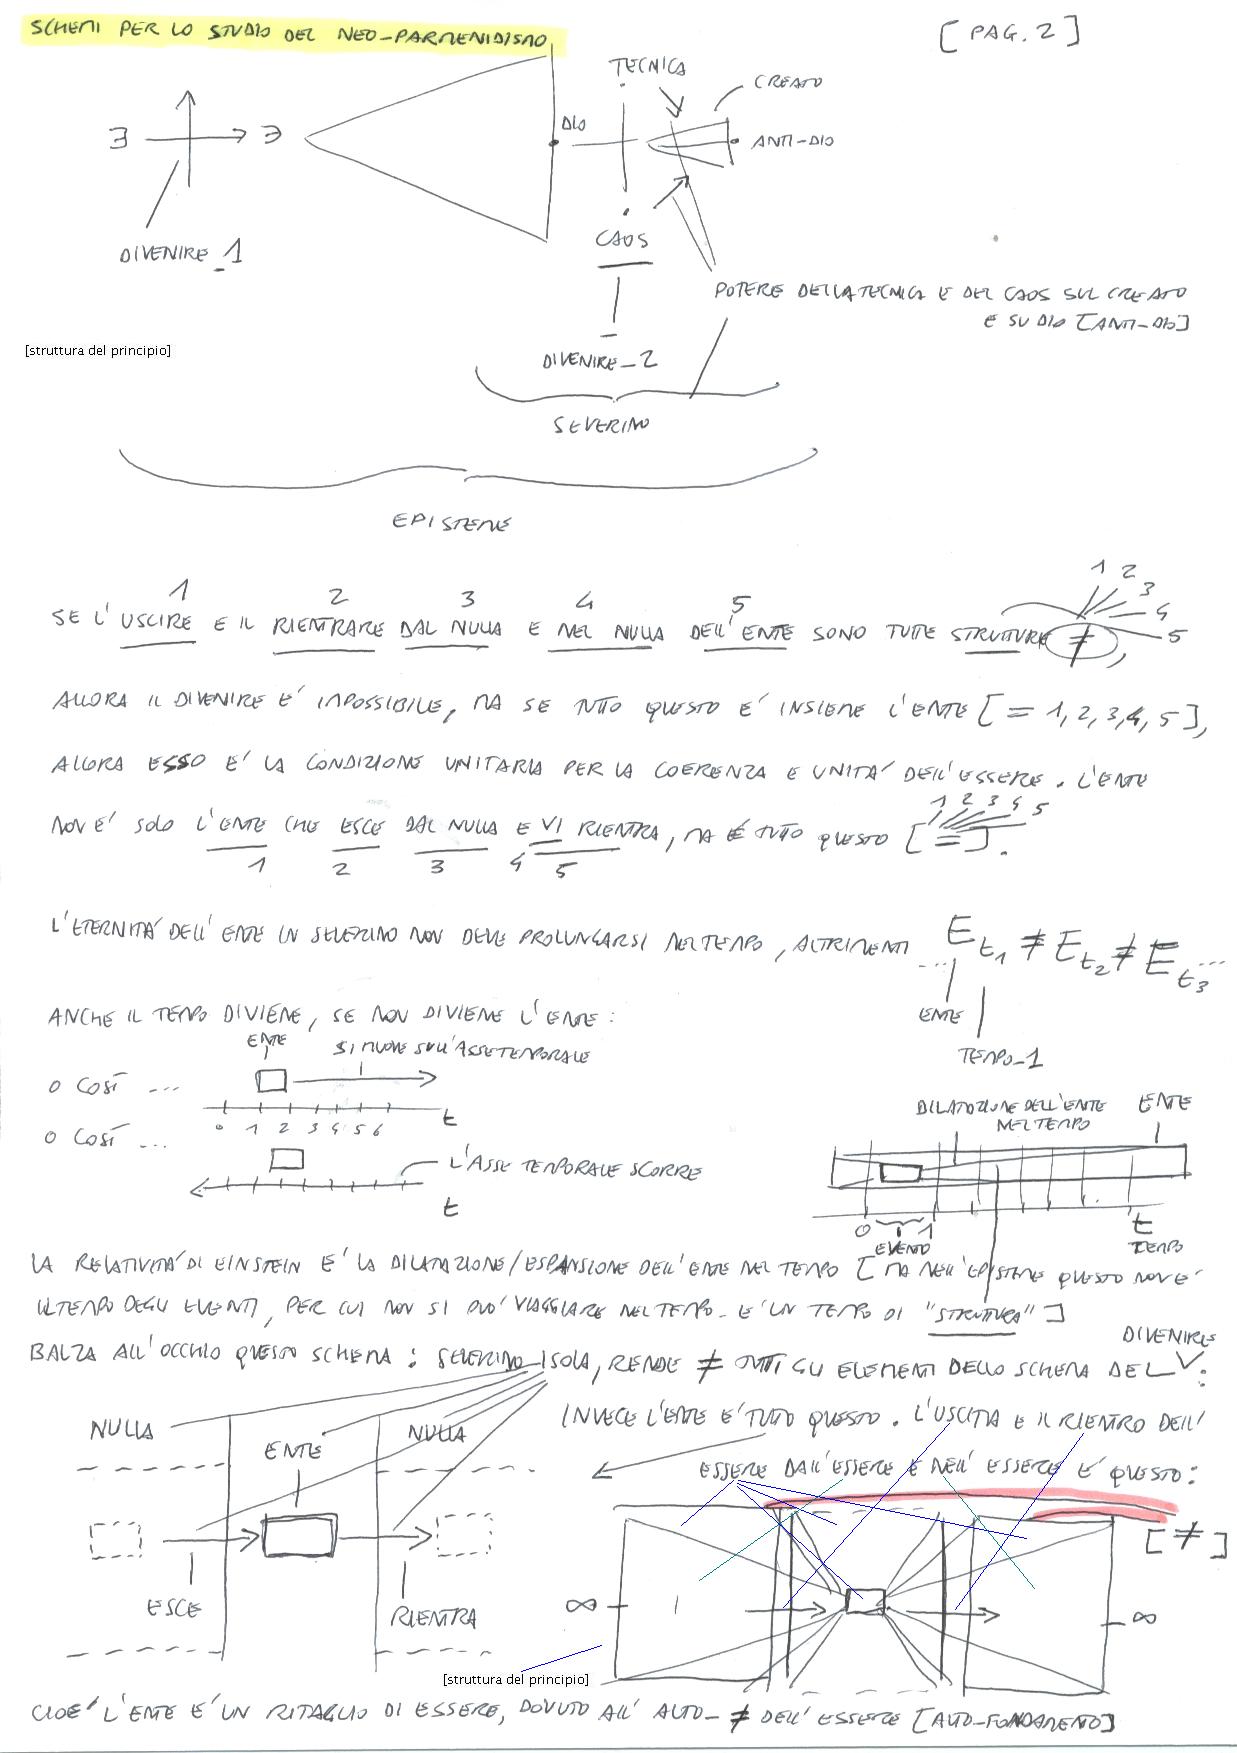 SCHEMI PER LO STUDIO DEL NEO-PARMENIDISMO
[PAG. 2]
TECNICA
CREATO
DIO
ANTI-DIO
∃ ∃
DIVENIRE_1
CAOS
POTERE DELLA TECNICA E DEL CAOS SUL CREATO
E SU DIO [ANTI-DIO]
[struttura del principio]
DIVENIRE_2
SEVERINO
EPISTEME
1 2 3 4 5
1 2 3 4 5
SE L'USCIRE E IL RIENTRARE DAL NULLA E NEL NULLA DELL'ENTE SONO TUTTE STRUTTURE ≠,
ALLORA IL DIVENIRE E' IMPOSSIBILE, MA SE TUTTO QUESTO E' INSIEME L'ENTE [= 1, 2, 3, 4, 5],
ALLORA ESSO E' LA CONDIZIONE UNITARIA PER LA COERENZA E UNITA' DELL'ESSERE. L'ENTE
1 2 3 4 5
NON E' SOLO L'ENTE CHE ESCE DAL NULLA E VI RIENTRA, MA E' TUTTO QUESTO [=].
1 2 3 4 5
L'ETERNITA' DELL'ENTE IN SEVERINO NON DEVE PROLUNGARSI NEL TEMPO, ALTRIMENTI ... E t1 ≠ E t2 ≠ E t3 ...
ENTE
TEMPO_1
ANCHE IL TEMPO DIVIENE, SE NON DIVIENE L'ENTE:
ENTE
SI MUOVE SULL'ASSE TEMPORALE
O COSÌ ...
0 1 2 3 4 5 6 t
O COSÌ ...
L'ASSE TEMPORALE SCORRE
t
DILATAZIONE DELL'ENTE
NEL TEMPO
ENTE
0 1 t
EVENTO
TEMPO
LA RELATIVITA' DI EINSTEIN E' LA DILATAZIONE/ESPANSIONE DELL'ENTE NEL TEMPO [MA NELL'EPISTEME QUESTO NON E'
IL TEMPO DEGLI EVENTI, PER CUI NON SI PUO' VIAGGIARE NEL TEMPO - E' UN TEMPO DI "STRUTTURA"]
DIVENIRE
BALZA ALL'OCCHIO QUESTO SCHEMA: SEVERINO ISOLA, RENDE ≠ TUTTI GLI ELEMENTI DELLO SCHEMA DEL:
NULLA
ENTE
NULLA
ESCE
RIENTRA
INVECE L'ENTE E' TUTTO QUESTO. L'USCITA E IL RIENTRO DELL'
ESSERE DALL'ESSERE E NELL'ESSERE E' QUESTO:
[≠]
∞ ∞
[struttura del principio]
CIOE' L'ENTE E' UN RITAGLIO DI ESSERE, DOVUTO ALL'AUTO-≠ DELL'ESSERE [AUTO-FONDAMENTO]